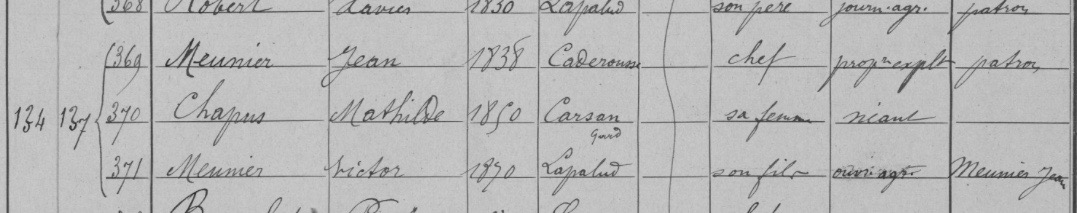 368 Robert Xavier 1830 Lapalud son père journ. agr. patron
369 Meunier Jean 1838 Caderousse chef propre explt patron
134 137 370 Chapus Mathilde 1850 Carsan Gard sa femme néant
371 Meunier Victor 1890 Lapalud son fils ouvr. agr. Meunier Jean